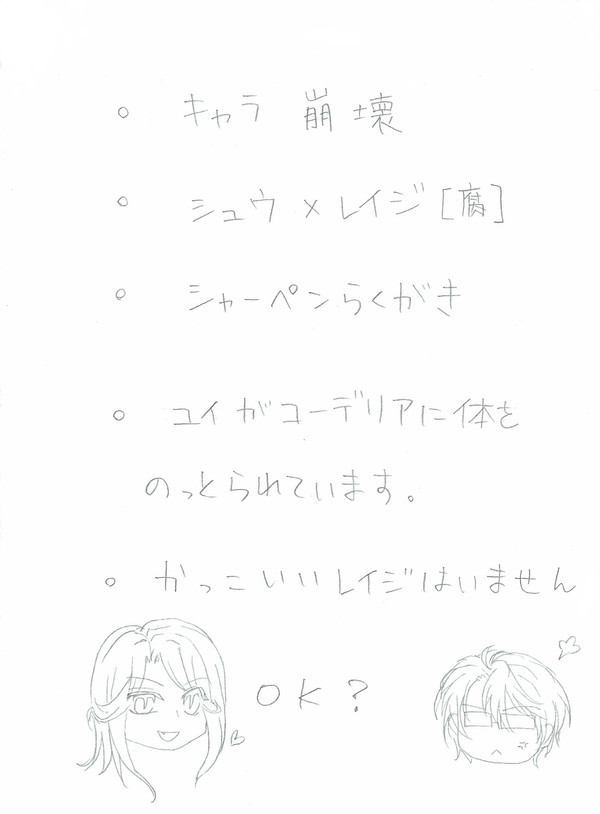 。 キャラ 崩壊
。 シュウ×レイジ[腐]
。 シャーペンらくがき
。 ユイがコーデリアに体を
のっとられています。
。 かっこいいレイジはいません
OK?